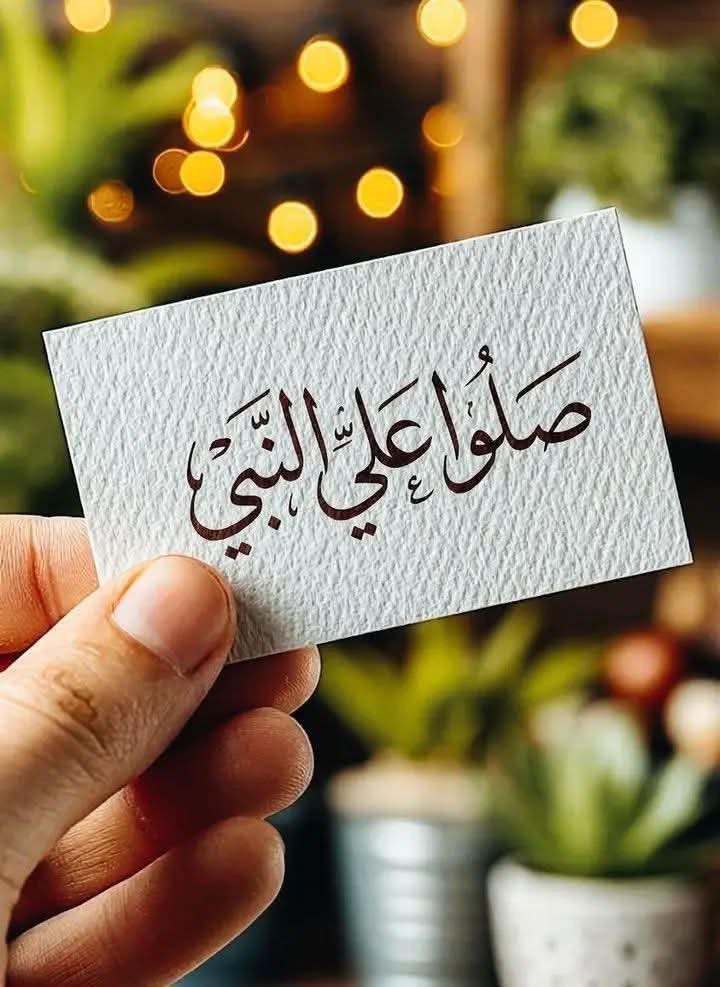 صَلُوا عَليِّ النَّبيْ